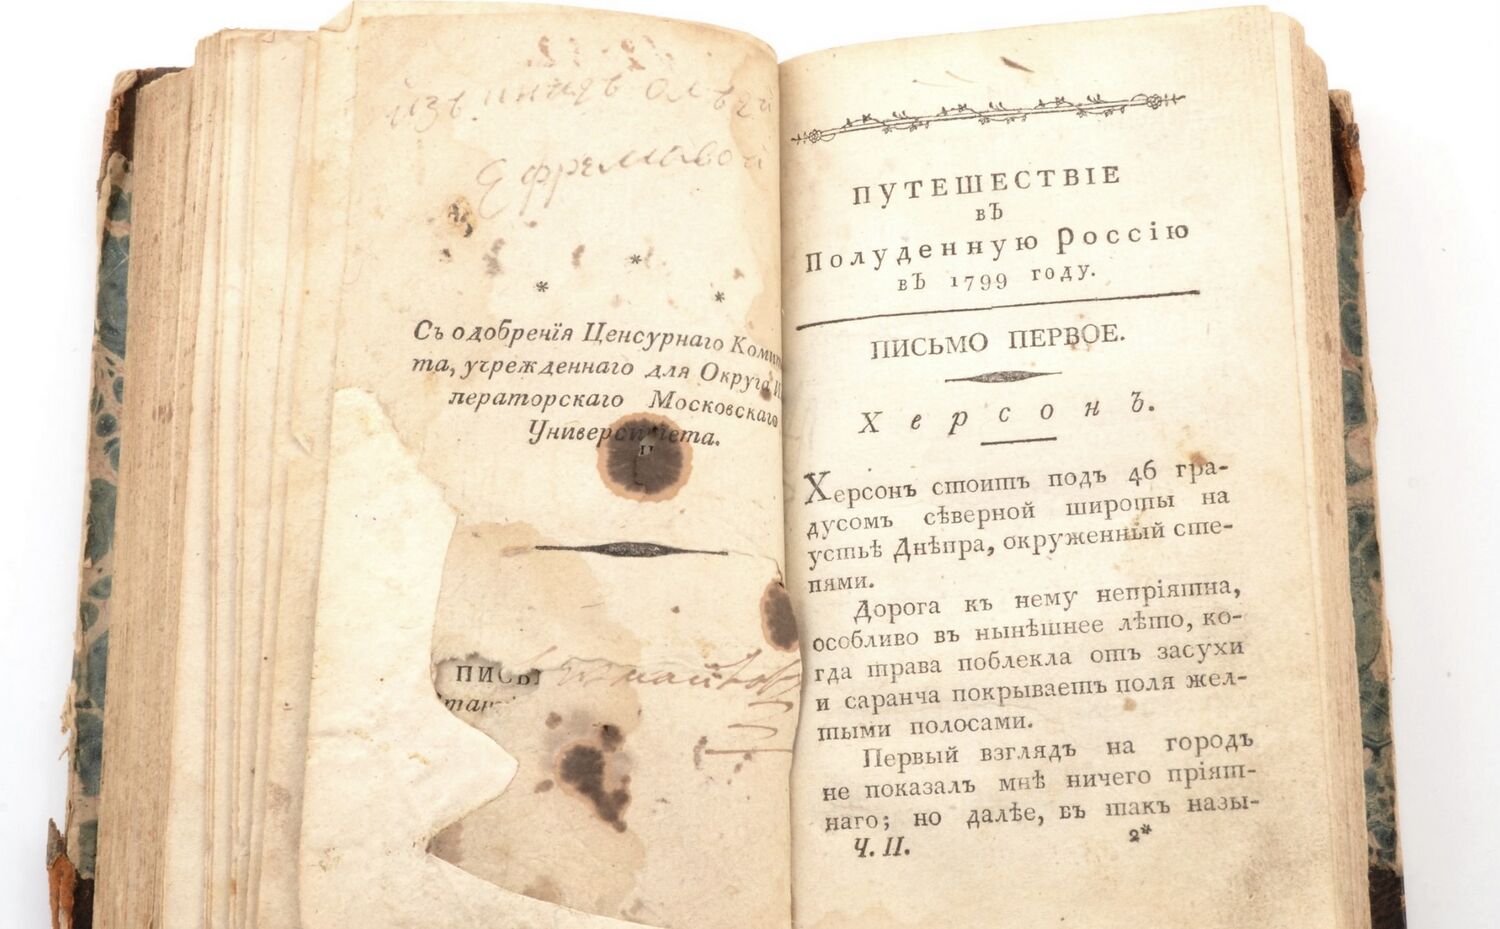 изъ книгъ
Ефремовой
* * *
Съ одобренїя Ценсурнаго Коми
та, учрежденнаго для Округа И
ператорскаго Московскаго
Университета.
ПИСЬ
ПУТЕШЕСТВІЕ
въ
Полуденную Россію
въ 1799 году.
ПИСЬМО ПЕРВОЕ.
Херсонъ.
Херсонъ стоитъ подъ 46 гра-
дусомъ сѣверной широты на
устьѣ Днѣпра, окруженный сте-
пями.
Дорога къ нему непріятна,
особливо въ нынѣшнее лѣто, ко-
гда трава поблекла отъ засухи
и саранча покрываетъ поля жел-
тыми полосами.
Первый взглядъ на городъ
не показалъ мнѣ ничего пріят-
наго; но далѣе, въ такъ назы-
Ч. II. 2*